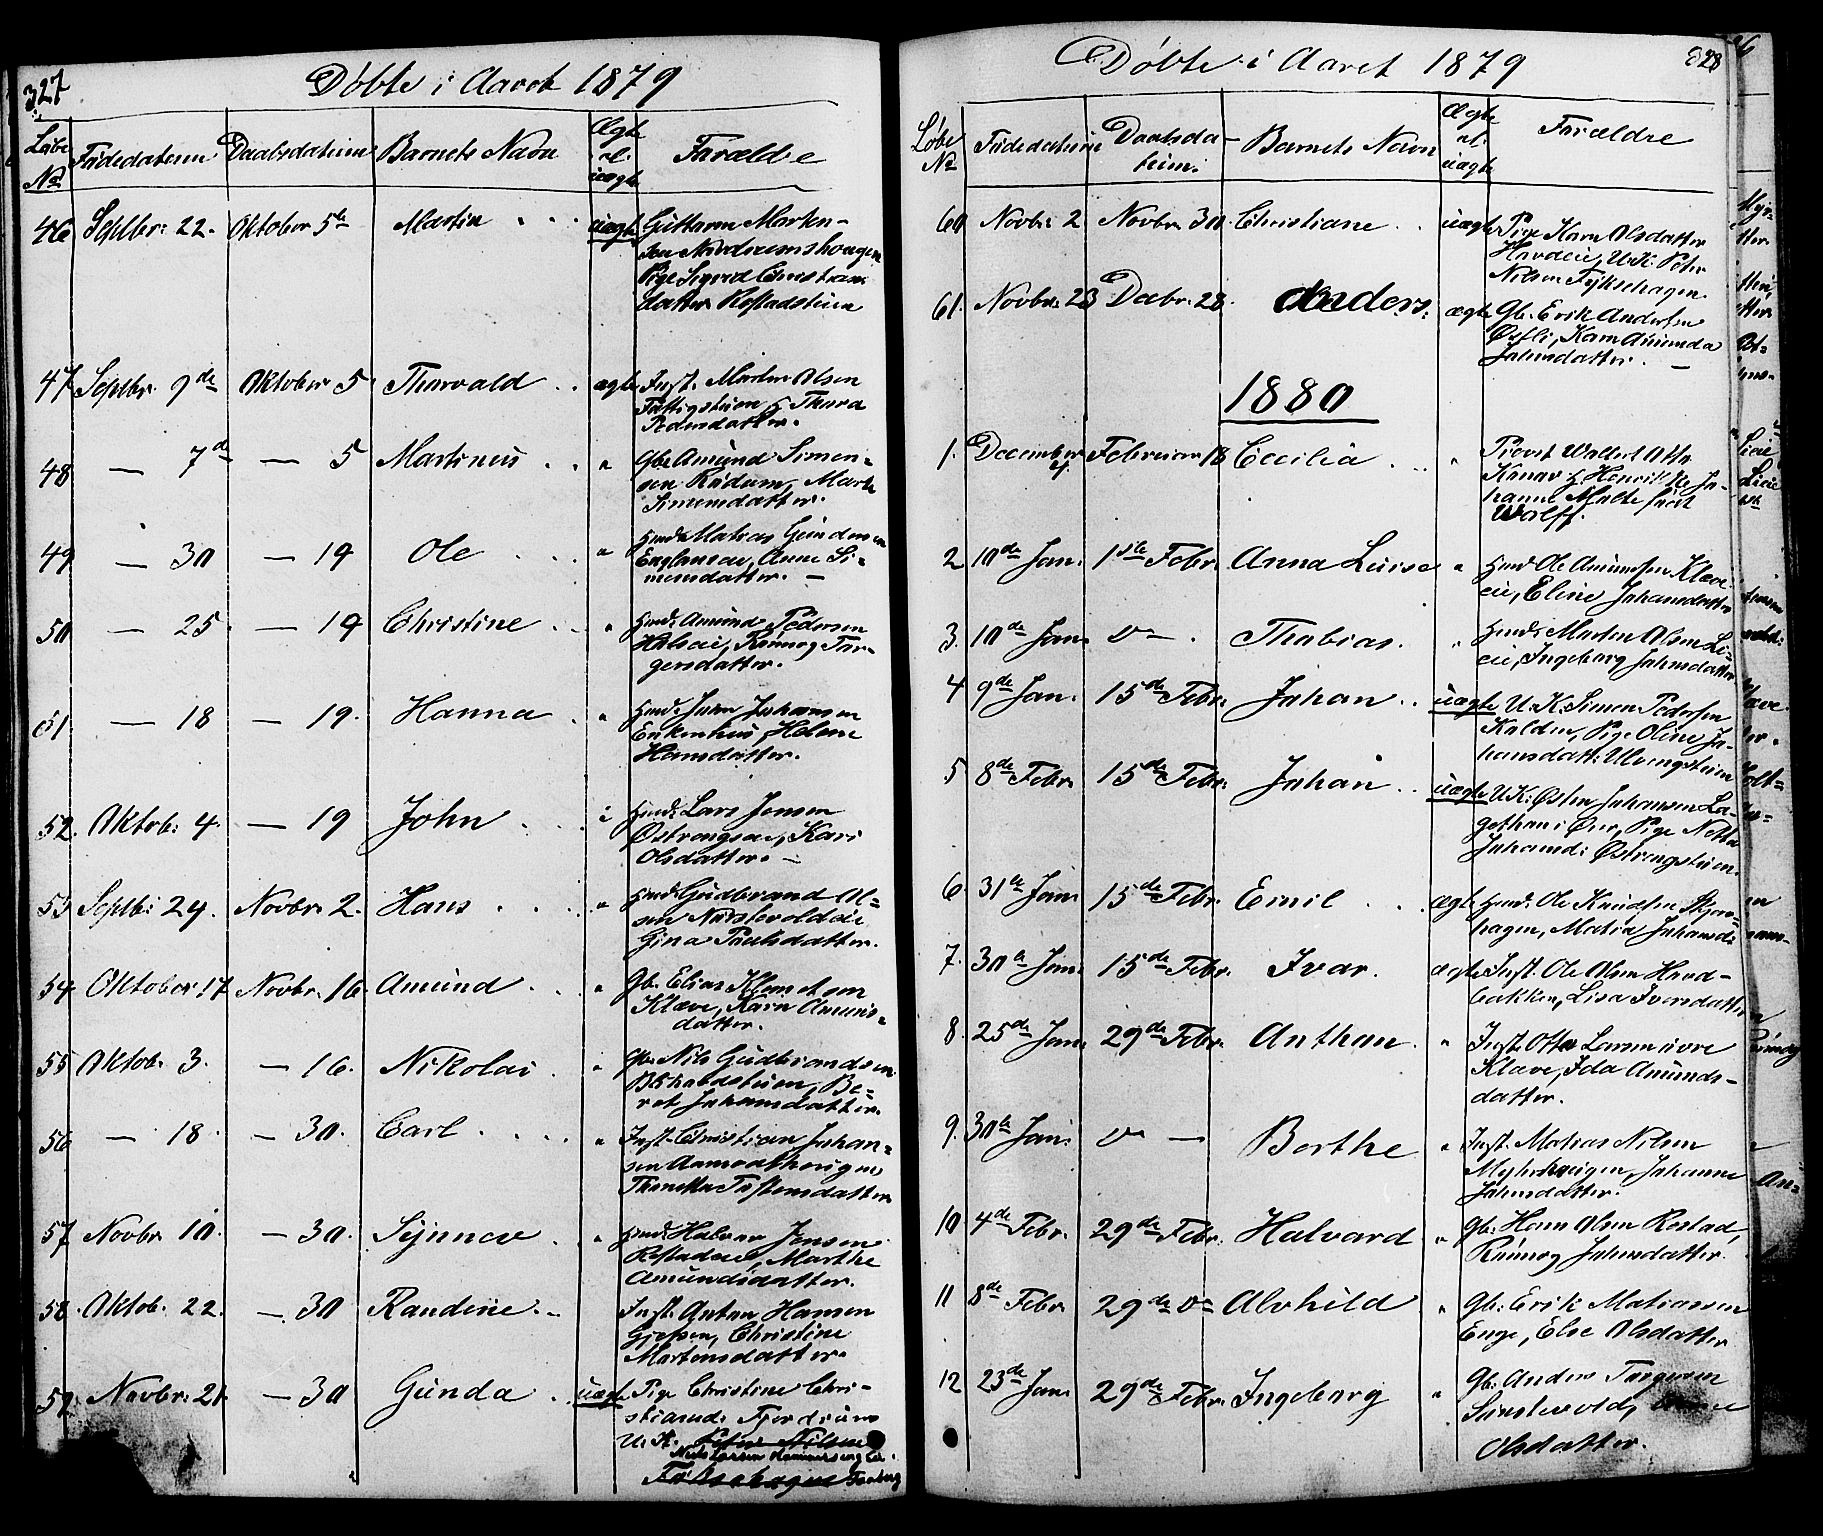 327
Döbte i Aaret 1879
Löbe No
Födedatum
Daabsdatum
Barnets Navn
Ægte el. uægte
Forældre
46 Septbr: 22. Oktober 5te Martin uægte Guttorm Marten-
sen Nordrumshougen
Pige Sigrid Christians
datter Rostadstuen
47 Septbr. 9de Oktober 5 Thorvald ægte Inst. Martin Olsen
Fattigstuen & Thora
Pedersdatter.
48 — 7de — 5 Martinus " Gbr Amund Simen-
sen Rudum, Marte
Simensdatter.
49 — 30 — 19 Ole " Husmd Matias Gundersen
Englanseie, Anne Si-
mensdatter. —
50 — 25 — 19 Christine " Husmd: Amund Pedersen
Holseie, Runnog Tor-
gersdatter.
51 — 18 — 19. Hanna " Husmd: John Johansen
Enkenhus, Helene
Hansdatter.
52. Oktob: 4. — 19 John " Husmd: Lars Jensen
Østrengseie, Kari
Olsdatter. —
53 Septb: 24. Novbr. 2. Hans " Husmd: Gudbrand Ol-
sen Nordsetvoldeie
Gina Paulsdatter.
54 Oktober 17 Novbr. 16 Amund " Gb. Elias Klemetsen
Kløve, Karn Amunds-
datter.
55 Oktob. 3. — 16. Nikolai " Gb. Nils Gudbrandsen
Be-
ret Johansdatter.
56 — 18. — 30. Carl " Inst. Christian Johan-
sen
Thonetta Tostensdatter
57 Novbr 10. — 30. Synnøve " Husmd: Halvor Jensen
Rostadeie, Marthe
Amundsdatter.
58. Oktob. 22. — 30 Randine. " Inst. Anton Hansen
Christine
Martensdatter.
59 Novbr. 21. — 30 Gunda uægte Pige Christine Chri-
stiansd: Fjordrum
U. K. Peter Nilsen
Nils Larsen
Fyksehagen Faaberg
328
Döbte i Aaret 1879
Löbe No
Födedatum
Daabsda-
tum.
Barnets Navn
Ægte el. uægte
Forældre
60 Novbr: 2 Novbr. 30 Christiane uægte Pige Karn Olsdatter
Hovdeie, U.K: Peter
Nilsen Fyksehagen.
61. Novbr. 23 Decbr. 28. Anders. ægte Gb. Erik Andersen
Østli, Karn Amunda
Johnsdatter. —
1880
1. December 4. Februar 18 Cecilia " Provst Wollert Otto
Konow & Henriette Jo-
hanne Malte født
Wolff.
2 10de Jan. 1ste Febr. Anna Luise " Husmd Ole Amundsen Kløve-
eie, Eline Johansdatter
3. 10de Jan. do — . Thobias. " Husmd: Morten Olsen Li-
eie, Ingeborg Johnsdatter
4 9de Jan. 15de Febr. Johan uægte U. K. Simen Pedersen
Kolden, Pige Oline Jo-
hansdatt: Ulvengstuen
5 8de Febr. 15de Febr. Johan uægte U.K: Østen Johansen La-
gethon i Øier, Pige Netta
Johansd: Østrengstuen.
6 31te Jan. 15de Febr. Emil ægte Husmd: Ole Knudsen Skjøn-
hagen, Matia Johansd:
7. 30te Jan. 15de Febr. Ivar. ægte Inst. Ole Olsen Hovd-
bakken, Lisa Iversdatter
8. 25de Jan. 29de Febr. Anthon. " Inst. Otto Larsen øvre
Kløve, Ida Amunds-
datter.
9. 30te Jan. do — Berthe " Inst. Matias Nilsen
Myhrhaugen, Johanne
Johnsdatter.
10 4de Febr. 29de Febr. Halvard " Gb: Hans Olsen Rostad,
Runnog Johnsdatter.
11 8de Febr 29de do Alvhild " Gb: Erik Matiassen
Enge, Else Olsdatter
12 23de Jan. 29de Febr. Ingeborg " Gb: Anders Torgersen
Olsdatter.